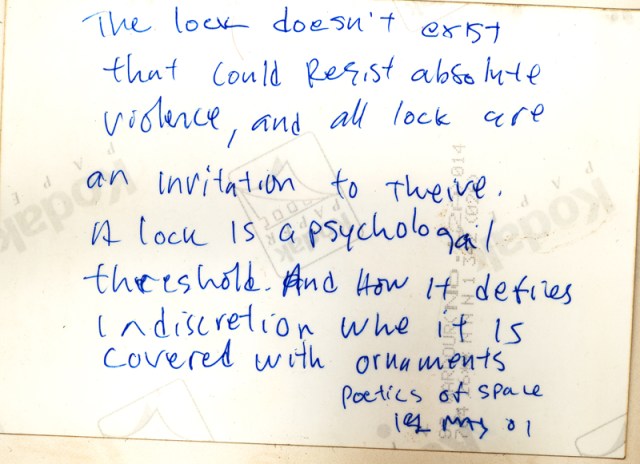 The lock doesn't exist
that could Resist absolute
violence, and all lock are
an invitation to Theive.
A lock is a psychologail
threshold. And How it defies
indiscretion whe it is
covered with ornaments
Poetics of space
may 01
Kodak
Kodak